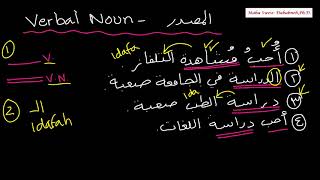 Verbal Noun - المصدر
① V
VN
② الـ
idafah
idafa
① أُحبُّ مُشاهدةَ التلفاز.
② الدراسة في الجامعة صعبة.
ida
③ دراسة الطب صعبة.
④ أحب دراسة اللغات.